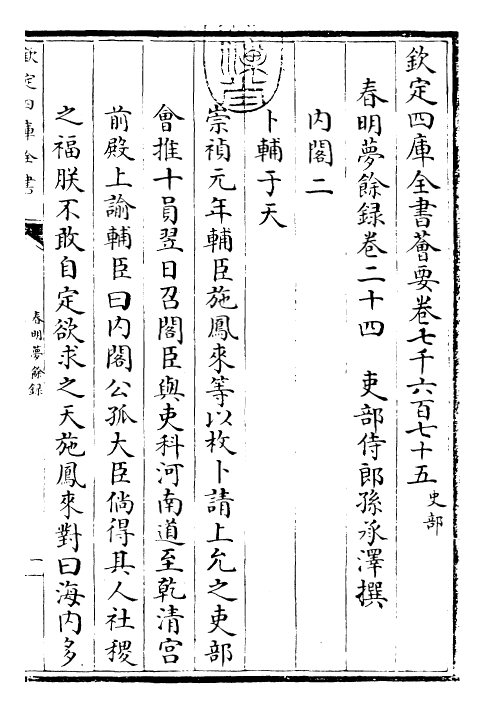 欽定四庫全書薈要卷七千六百七十五 史部
春明夢餘錄卷二十四 吏部侍郎孫承澤撰
內閣二
卜輔于天
崇禎元年輔臣施鳳來等以枚卜請上允之吏部
會推十員翌日召閣臣與吏科河南道至乾清宮
前殿上諭輔臣曰內閣公孤大臣倘得其人社稷
之福朕不敢自定欲求之天施鳳來對曰海內多
欽定四庫全書
春明夢餘錄
一